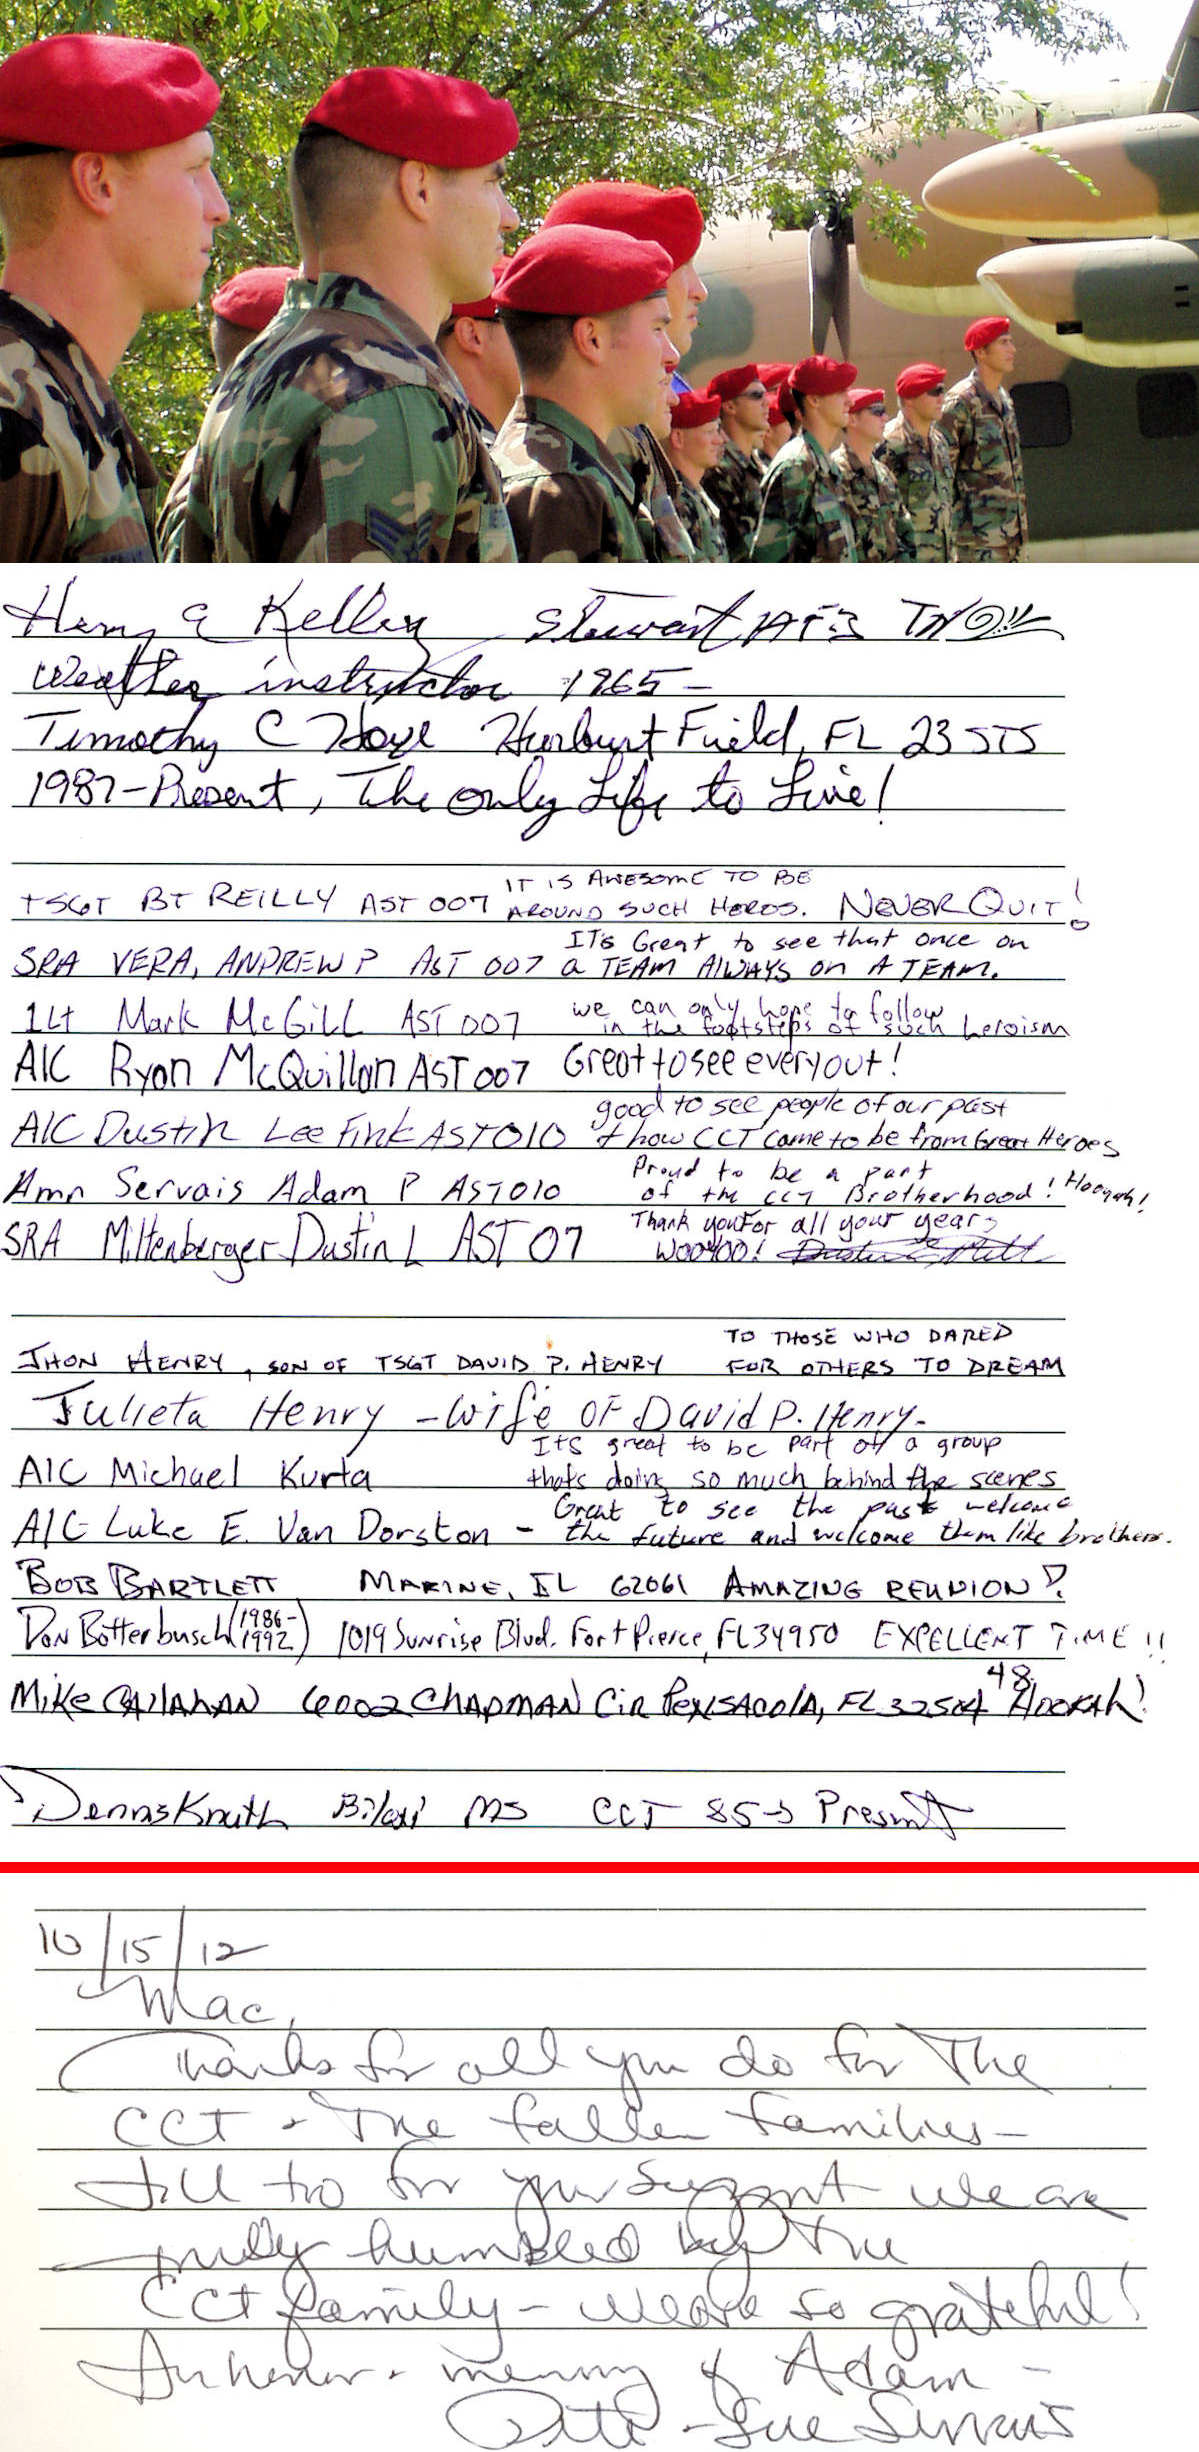 Henry G Kelley Stewart AFB
Weather instructor 1965-
Timothy C Hoye Hurlburt Field, FL 23 STS
1987-Present, The only Life to Live!
TSGT BT REILLY AST 007 IT IS AWESOME TO BE
AROUND SUCH HEROS. NEVER QUIT!
SRA VERA, ANDREW P AST 007 IT'S Great to see that once on
a TEAM AlWAYS on A TEAM.
1Lt Mark McGill AST 007 we can only hope to follow
in the footsteps of such heroism
A1C Ryan McQuillan AST 007 Great to see everyout!
A1C Dustin Lee Fink AST 010 good to see people of our past
+ how CCT came to be from Great Heroes
Amn Servais Adam P AST 010 Proud to be a part
of the CCT Brotherhood! Hooyah!
SRA Miltenberger Dustin L AST 07 Thank you For all your years
WOOYOO!
JHON HENRY, SON OF TSGT DAVID P. HENRY TO THOSE WHO DARED
FOR OTHERS TO DREAM
Julieta Henry - Wife OF David P. Henry-
A1C Michael Kurta Its great to be part off a group
thats doing so much behind the scenes
A1C Luke E. Van Dorston - Great to see the past welcome
the future and welcome them like brothers.
BOB BARTLETT MARINE, IL 62061 AMAZING REUNION!
DON Botterbusch (1986-1992) 1019 Sunrise Blvd. Fort Pierce, FL 34950 EXPELLENT TIME!!
MIKE CAllAHAN 6002 CHAPMAN Cir PENSACOlA, FL 32504 48 HOOKAH!
Dennis Knuth Biloxi MS CCT 85-> Present
10/15/12
Mac,
Thanks for all you do for The
CCT & The fallen families-
for your support we are
truly humbled by the
CCT family - We are so grateful!
In honor & memory of Adam -
Pete & Sue Servais